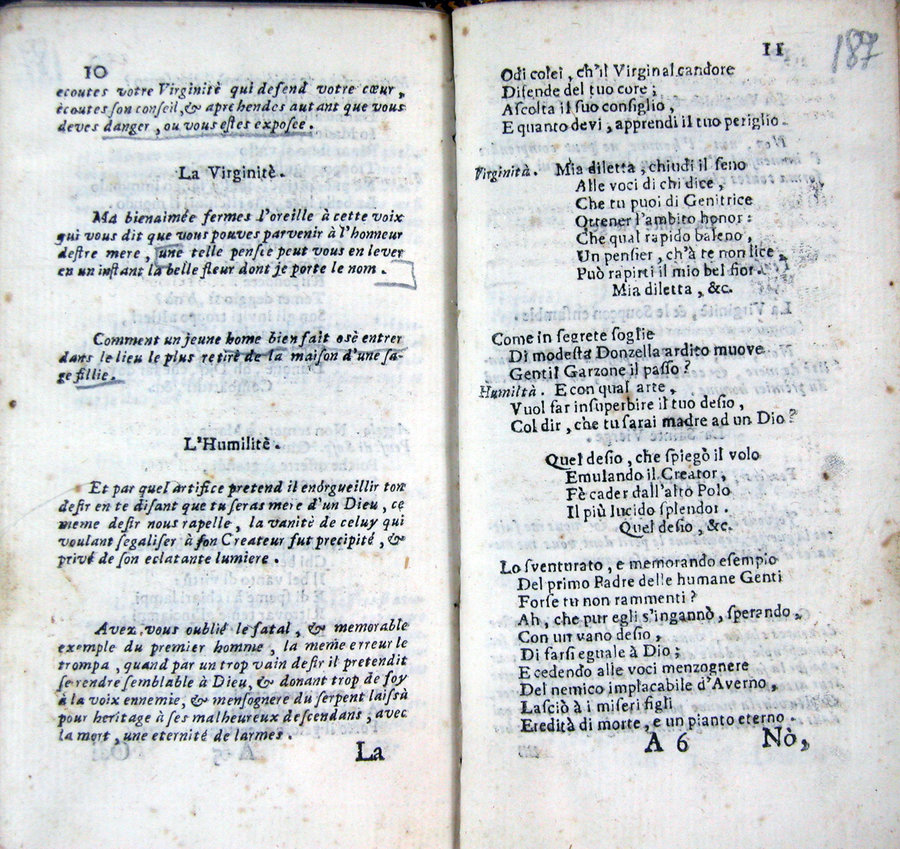 10
ecoutes votre Virginité qui defend votre cœur,
écoutes son conseil, & aprehendes autant que vous
deves danger, ou vous estes exposée.
La Virginitè.
Ma bienaimée fermes l'oreille à cette voix
qui vous dit que vous pouves parvenir à l'honneur
destre mere, une telle pensée peut vous en lever
en un instant la belle fleur dont je porte le nom.
Comment un jeune home bien fait osè entrer
dans le lieu le plus retiré de la maison d'une sa-
ge fillie.
L'Humilitè.
Et par quel artifice pretend il enorgueillir ton
desir en te disant que tu seras mere d'un Dieu, ce
meme desir nous rapelle, la vanité de celuy qui
voulant segaliser à son Createur fut precipité, &
privé de son eclatante lumiere.
Avez vous oublié le fatal, & memorable
exemple du premier homme, la meme erreur le
trompa, quand par un trop vain desir il pretendit
se rendre semblable à Dieu, & donant trop de foy
à la voix ennemie, & mensognere du serpent laissà
pour heritage à ses malheureux descendans, avec
la mort, une eternité de larmes.
La
11
187
Odi colei, ch'il Virginal candore
Difende del tuo core;
Ascolta il suo consiglio,
E quanto devi, apprendi il tuo periglio.
Virginità. Mia diletta, chiudi il seno
Alle voci di chi dice,
Che tu puoi di Genitrice
Ottener l'ambito honor:
Che qual rapido baleno,
Un pensier, ch'à te non lice,
Può rapirti il mio bel fior.
Mia diletta, &c.
Come in segrete soglie
Di modesta Donzella ardito muove
Gentil Garzone il passo?
Humiltà. E con qual arte,
Vuol far insuperbire il tuo desio,
Col dir, che tu sarai madre ad un Dio?
Quel desio, che spiegò il volo
Emulando il Creator,
Fè cader dall'alto Polo
Il più lucido splendor.
Quel desio, &c.
Lo sventurato, e memorando esempio
Del primo Padre delle humane Genti
Forse tu non rammenti?
Ah, che pur egli s'ingannò, sperando,
Con un vano desio,
Di farsi eguale à Dio;
E cedendo alle voci menzognere
Del nemico implacabile d'Averno,
Lasciò à i miseri figli
Eredità di morte, e un pianto eterno.
A 6 Nò,